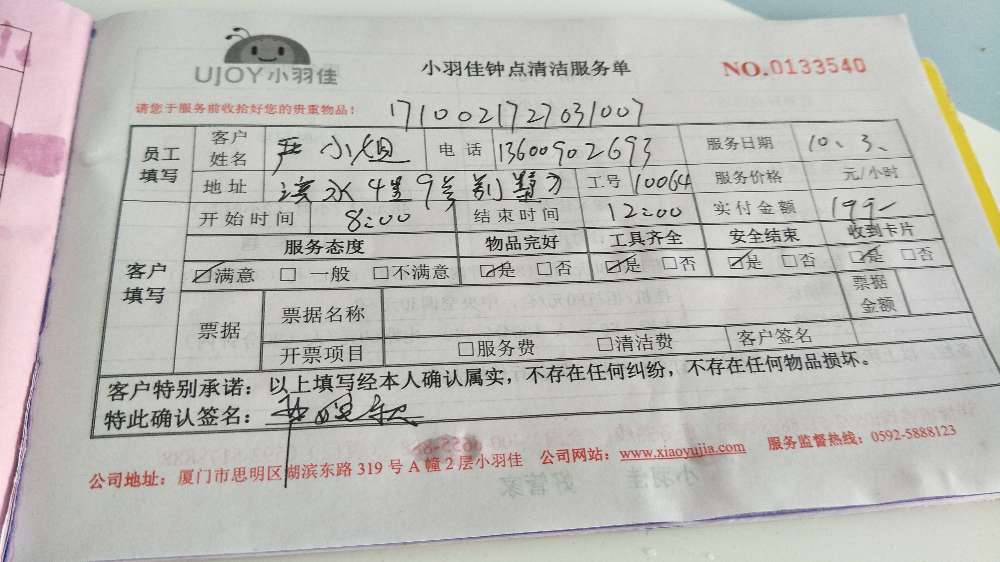 UJOY小羽佳
小羽佳钟点清洁服务单
NO.0133540
请您于服务前收拾好您的贵重物品！
1710021727031007
员工填写 客户姓名 严小姐 电话 13600902693 服务日期 10、3、
地址 水4里9号别墅 工号 10064 服务价格 元/小时
客户填写 开始时间 8:00 结束时间 12:00 实付金额 199-
服务态度 物品完好 工具齐全 安全结束 收到卡片
☑满意 □一般 □不满意 ☑是 □否 ☑是 □否 ☑是 □否 ☑是 □否
票据 票据名称 票据金额
开票项目 □服务费 □清洁费 客户签名
客户特别承诺：以上填写经本人确认属实，不存在任何纠纷，不存在任何物品损坏。
特此确认签名：
公司地址：厦门市思明区湖滨东路 319 号 A 幢 2 层小羽佳 公司网站：www.xiaoyujia.com 服务监督热线：0592-5888123
小羽佳 好管家